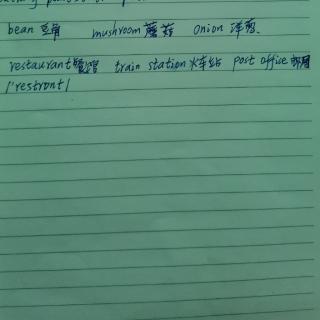 bean 豆角 mushroom 蘑菇 onion 洋葱.
restaurant 餐馆 train station 火车站 post office 邮局
/'restrɒnt/